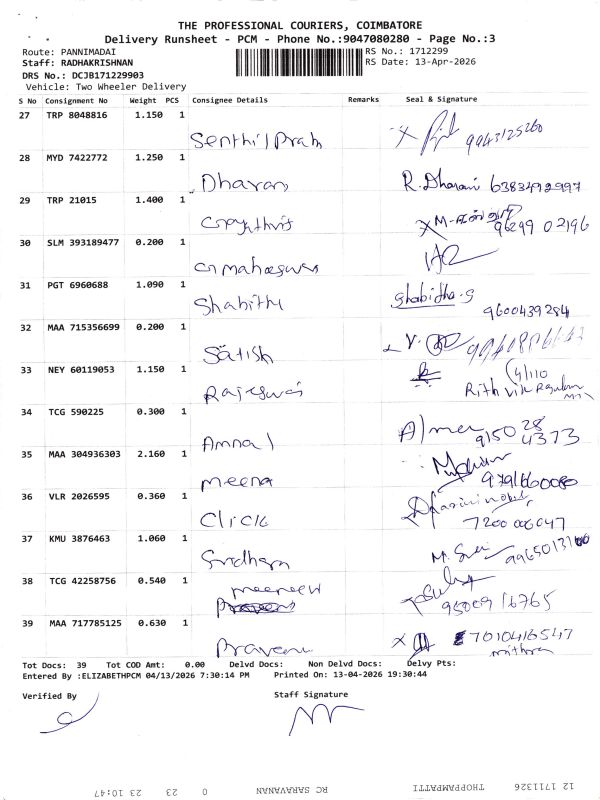 THE PROFESSIONAL COURIERS, COIMBATORE
Delivery Runsheet - PCM - Phone No.:9047080280 - Page No.:3
Route: PANNIMADAI RS No.: 1712299
Staff: RADHAKRISHNAN RS Date: 13-Apr-2026
DRS No.: DCJB171229903
Vehicle: Two Wheeler Delivery
S No Consignment No Weight PCS Consignee Details Remarks Seal & Signature
27 TRP 8048816 1.150 1
Senthil Prab 9943125260
28 MYD 7422772 1.250 1
Dharan R. Dharani 6383492997
29 TRP 21015 1.400 1
96299 02196
30 SLM 393189477 0.200 1
G maheswar
31 PGT 6960688 1.090 1
Shabith Shabidha.S
9600439284
32 MAA 715356699 0.200 1
Satish V.
33 NEY 60119053 1.150 1
Rajeswai 4/110
34 TCG 590225 0.300 1
Amnal 915028
4373
35 MAA 304936303 2.160 1
meena 9791660080
36 VLR 2026595 0.360 1
Click 7200006047
37 KMU 3876463 1.060 1
Sridharn
38 TCG 42258756 0.540 1
95009 16765
39 MAA 717785125 0.630 1
Praveen X 7010416547
mithra
Tot Docs: 39 Tot COD Amt: 0.00 Delvd Docs: Non Delvd Docs: Delvy Pts:
Entered By :ELIZABETHPCM 04/13/2026 7:30:14 PM Printed On: 13-04-2026 19:30:44
Verified By Staff Signature
12 1711326 THOPPAMPATTI RC SARAVANAN 0 23 23 10:47